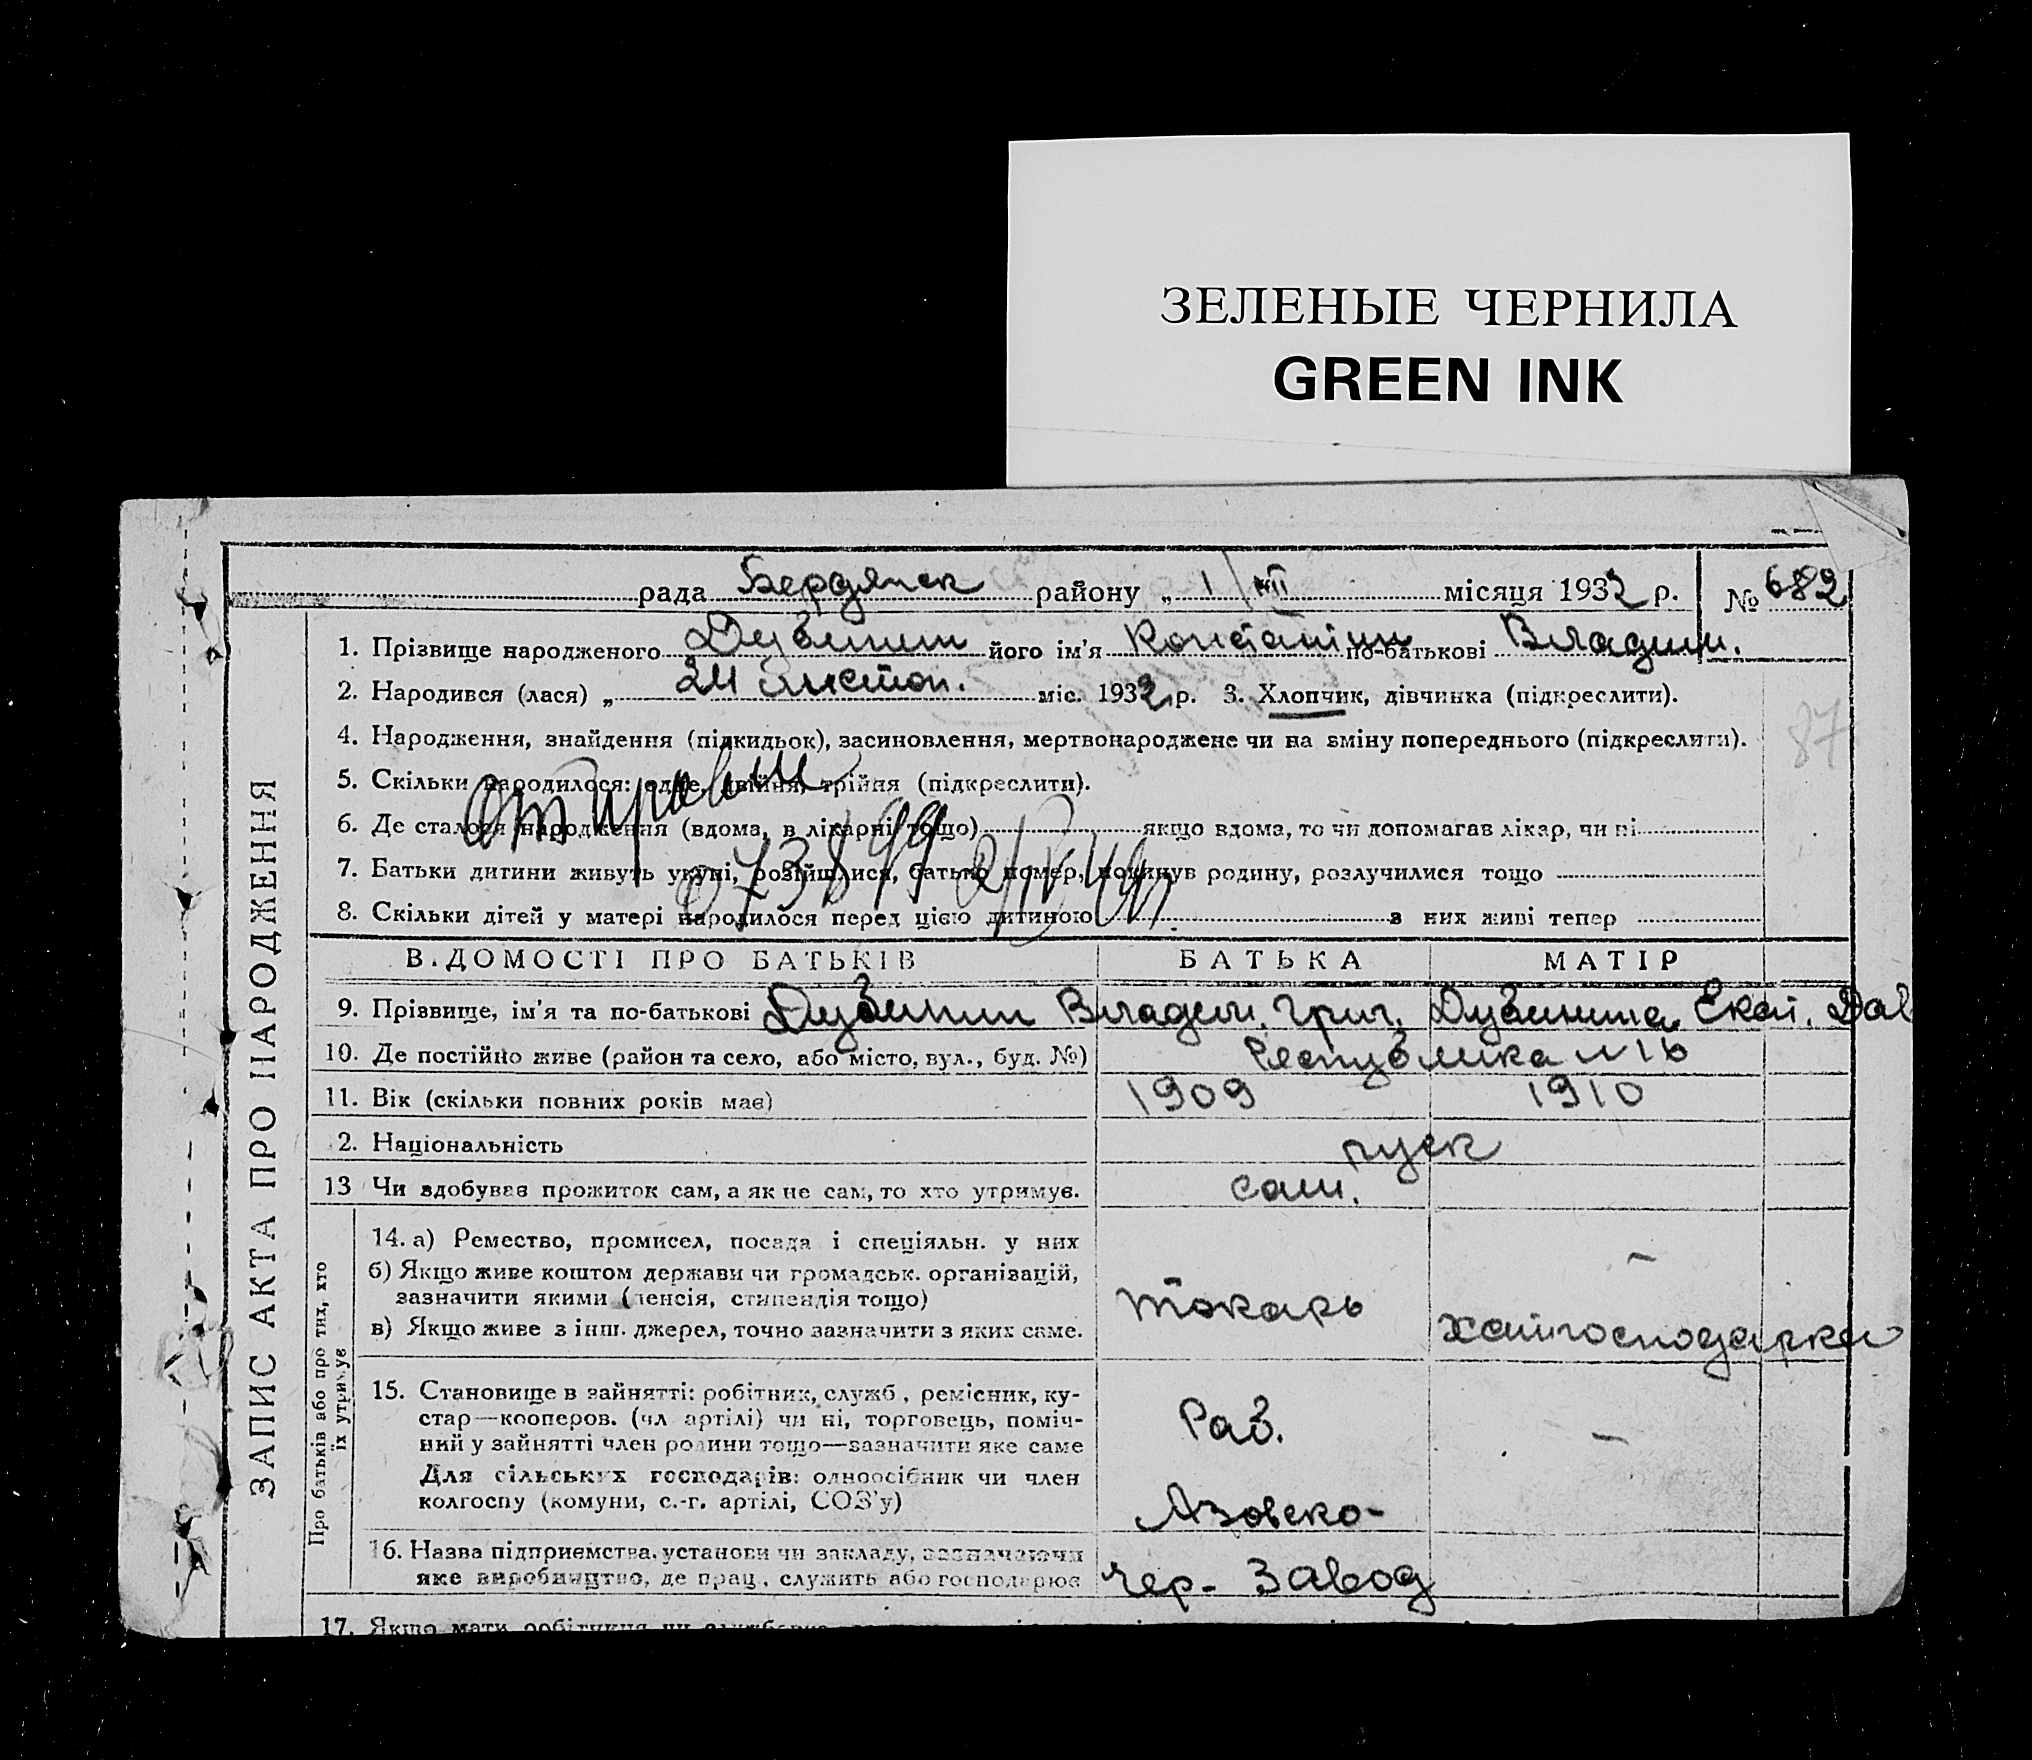 ЗЕЛЕНЫЕ ЧЕРНИЛА
GREEN INK
рада Бердянск району „ 1/XII місяця 1932 р. № 682
1. Прізвище народженого Дубинин його ім'я Констатин по-батькові Владим.
2. Народився (лася) „ 24 листоп. міс. 1932 р. 3. Хлопчик, дівчинка (підкреслити).
4. Народження, знайдення (підкидьок), засиновлення, мертвонароджене чи на зміну попереднього (підкреслити).
87
5. Скільки народилося: одне, двійня, трійня (підкреслити).
6. Де сталося народження (вдома, в лікарні тощо) якщо вдома, то чи допомагав лікар, чи ні
7. Батьки дитини живуть укупі, розійшлися, батько помер, покинув родину, розлучилися тощо
8. Скільки дітей у матері народилося перед цією дитиною з них живі тепер
ЗАПИС АКТА ПРО НАРОДЖЕННЯ
В.ДОМОСТІ ПРО БАТЬКІВ БАТЬКА МАТІР
9. Прізвище, ім'я та по-батькові Дубинин Владим. Григ. Дубинина Екат. Дав
10. Де постійно живе (район та село, або місто, вул., буд. №) Республика №16
11. Вік (скільки повних років має) 1909 1910
2. Національність руск
13 Чи здобував прожиток сам, а як не сам, то хто утримув. сам.
Про батьків або про тих, хто їх утримує
14. а) Ремество, промисел, посада і спеціяльн. у них
б) Якщо живе коштом держави чи громадськ. організацій,
зазначити якими (пенсія, стипендія тощо) токарь
в) Якщо живе з інш. джерел, точно зазначити з яких саме. хатгосподарка
15. Становище в зайнятті: робітник, служб, ремісник, ку-
стар—кооперов. (чл артілі) чи ні, торговець, поміч- Раб.
ний у зайнятті член родини тощо—зазначити яке саме
Для сільських господарів: одноосібник чи член
колгоспу (комуни, с.-г. артілі, СОЗ'у) Азовско-
16. Назва підприємства, установи чи закладу, зазначаючи
яке виробництво, де прац, служить або господарює Чер- Завод
17. Якщо мати